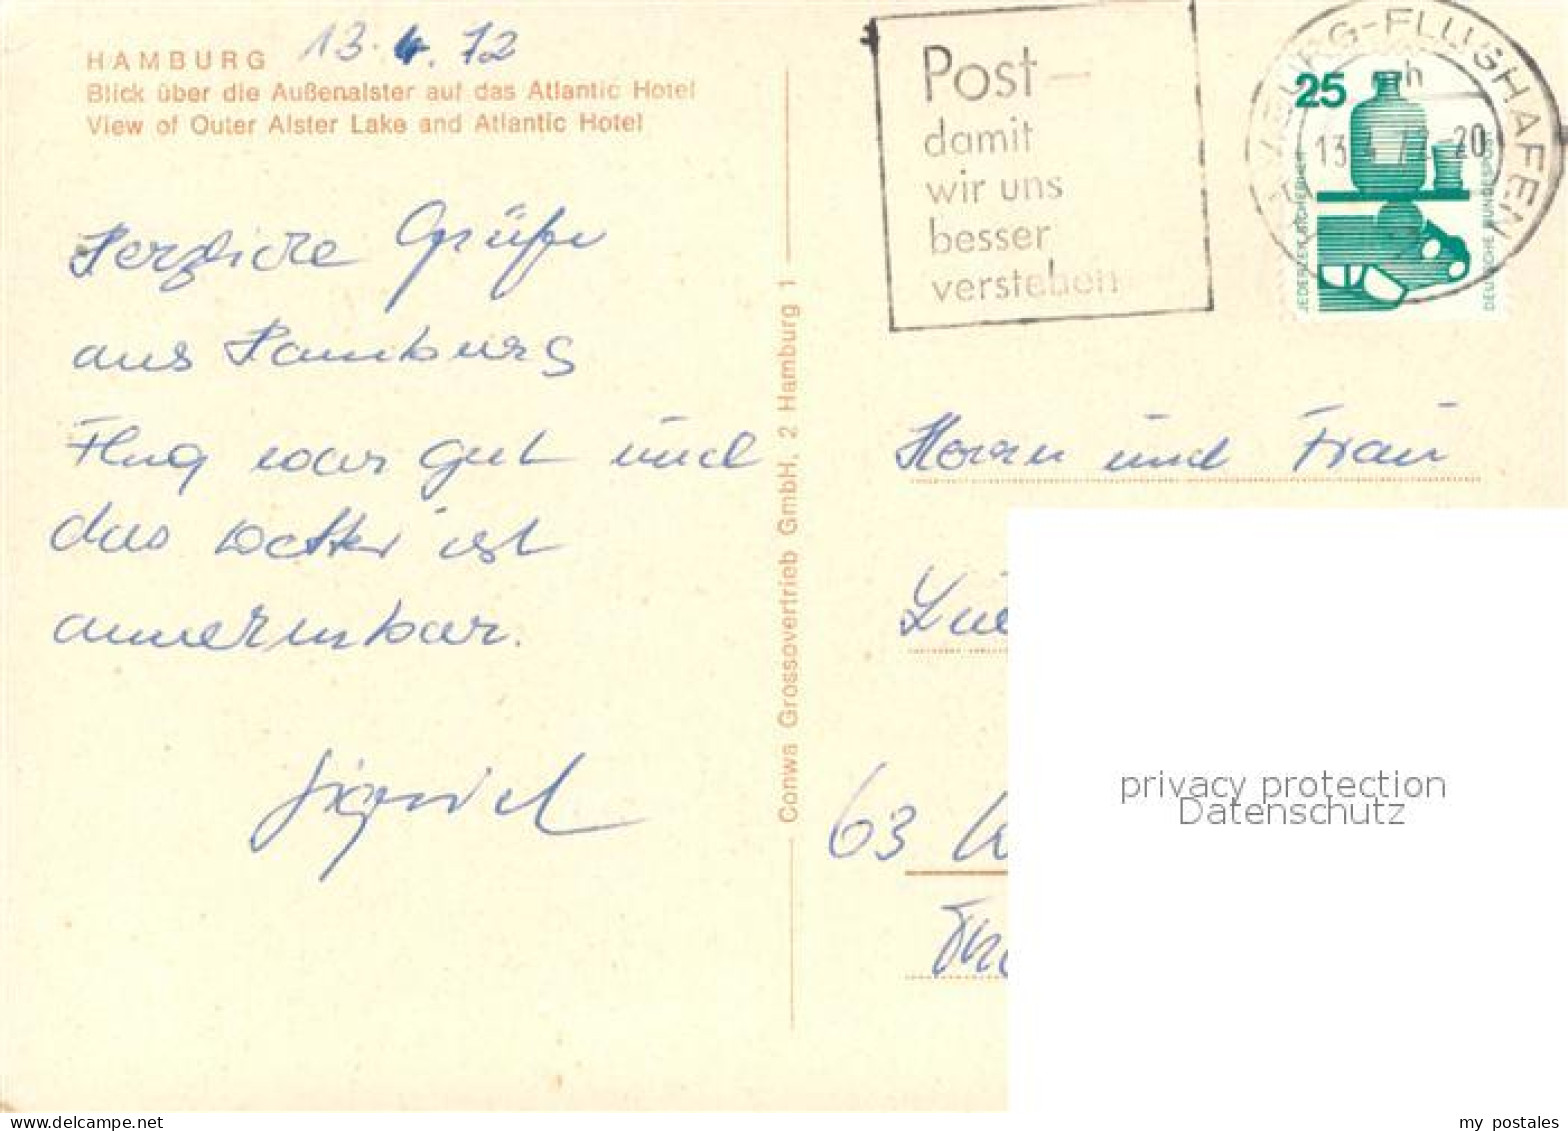 HAMBURG 13.4.72
Blick über die Außenalster auf das Atlantic Hotel
View of Outer Alster Lake and Atlantic Hotel
Herzliche Grüße
aus Hamburg
Flug war gut und
das Wetter ist
annehmbar.
Sigrid
Conwa Grossovertrieb GmbH, 2 Hamburg 1
Post-
damit
wir uns
besser
verstehen
HAMBURG-FLUGHAFEN
13.4.72-20
h
25
JEDERZEIT SICHERHEIT
DEUTSCHE BUNDESPOST
Herrn und Frau
63
privacy protection
Datenschutz
my postales